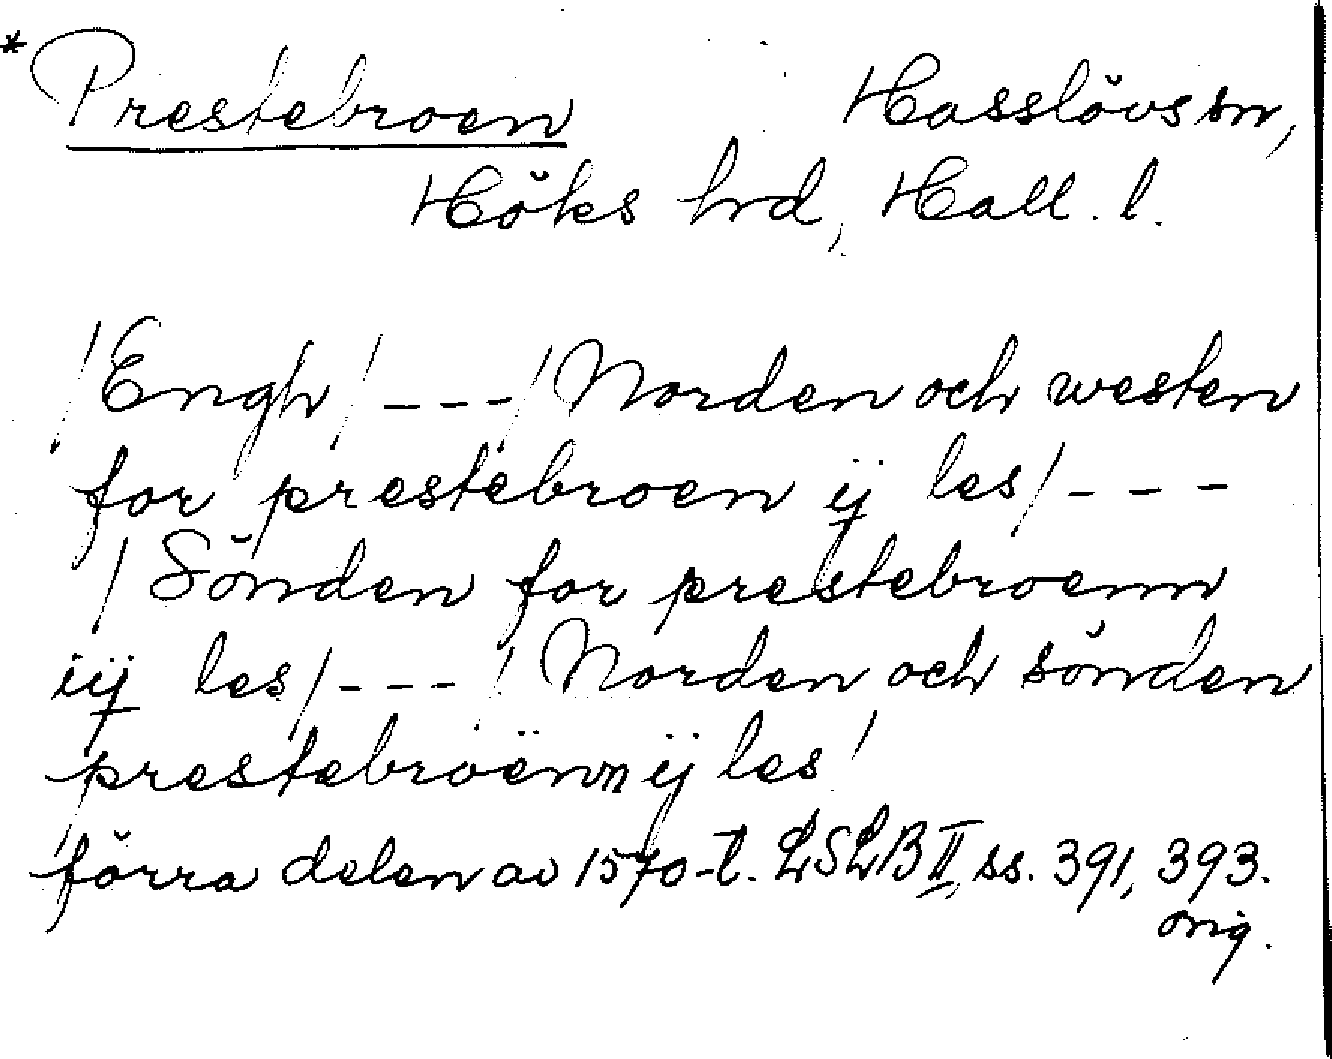 *Prestebroen Hasslövs sn,
Höks hrd, Hall. l.
/Engh/---/Norden och westen
for prestebroen ij les/---
/Sönden for prestebroenn
iij les/---/Norden och sönden
prestebroënn ij les/
förra delen av 1570-t. LSLB II, ss. 391, 393.
orig.